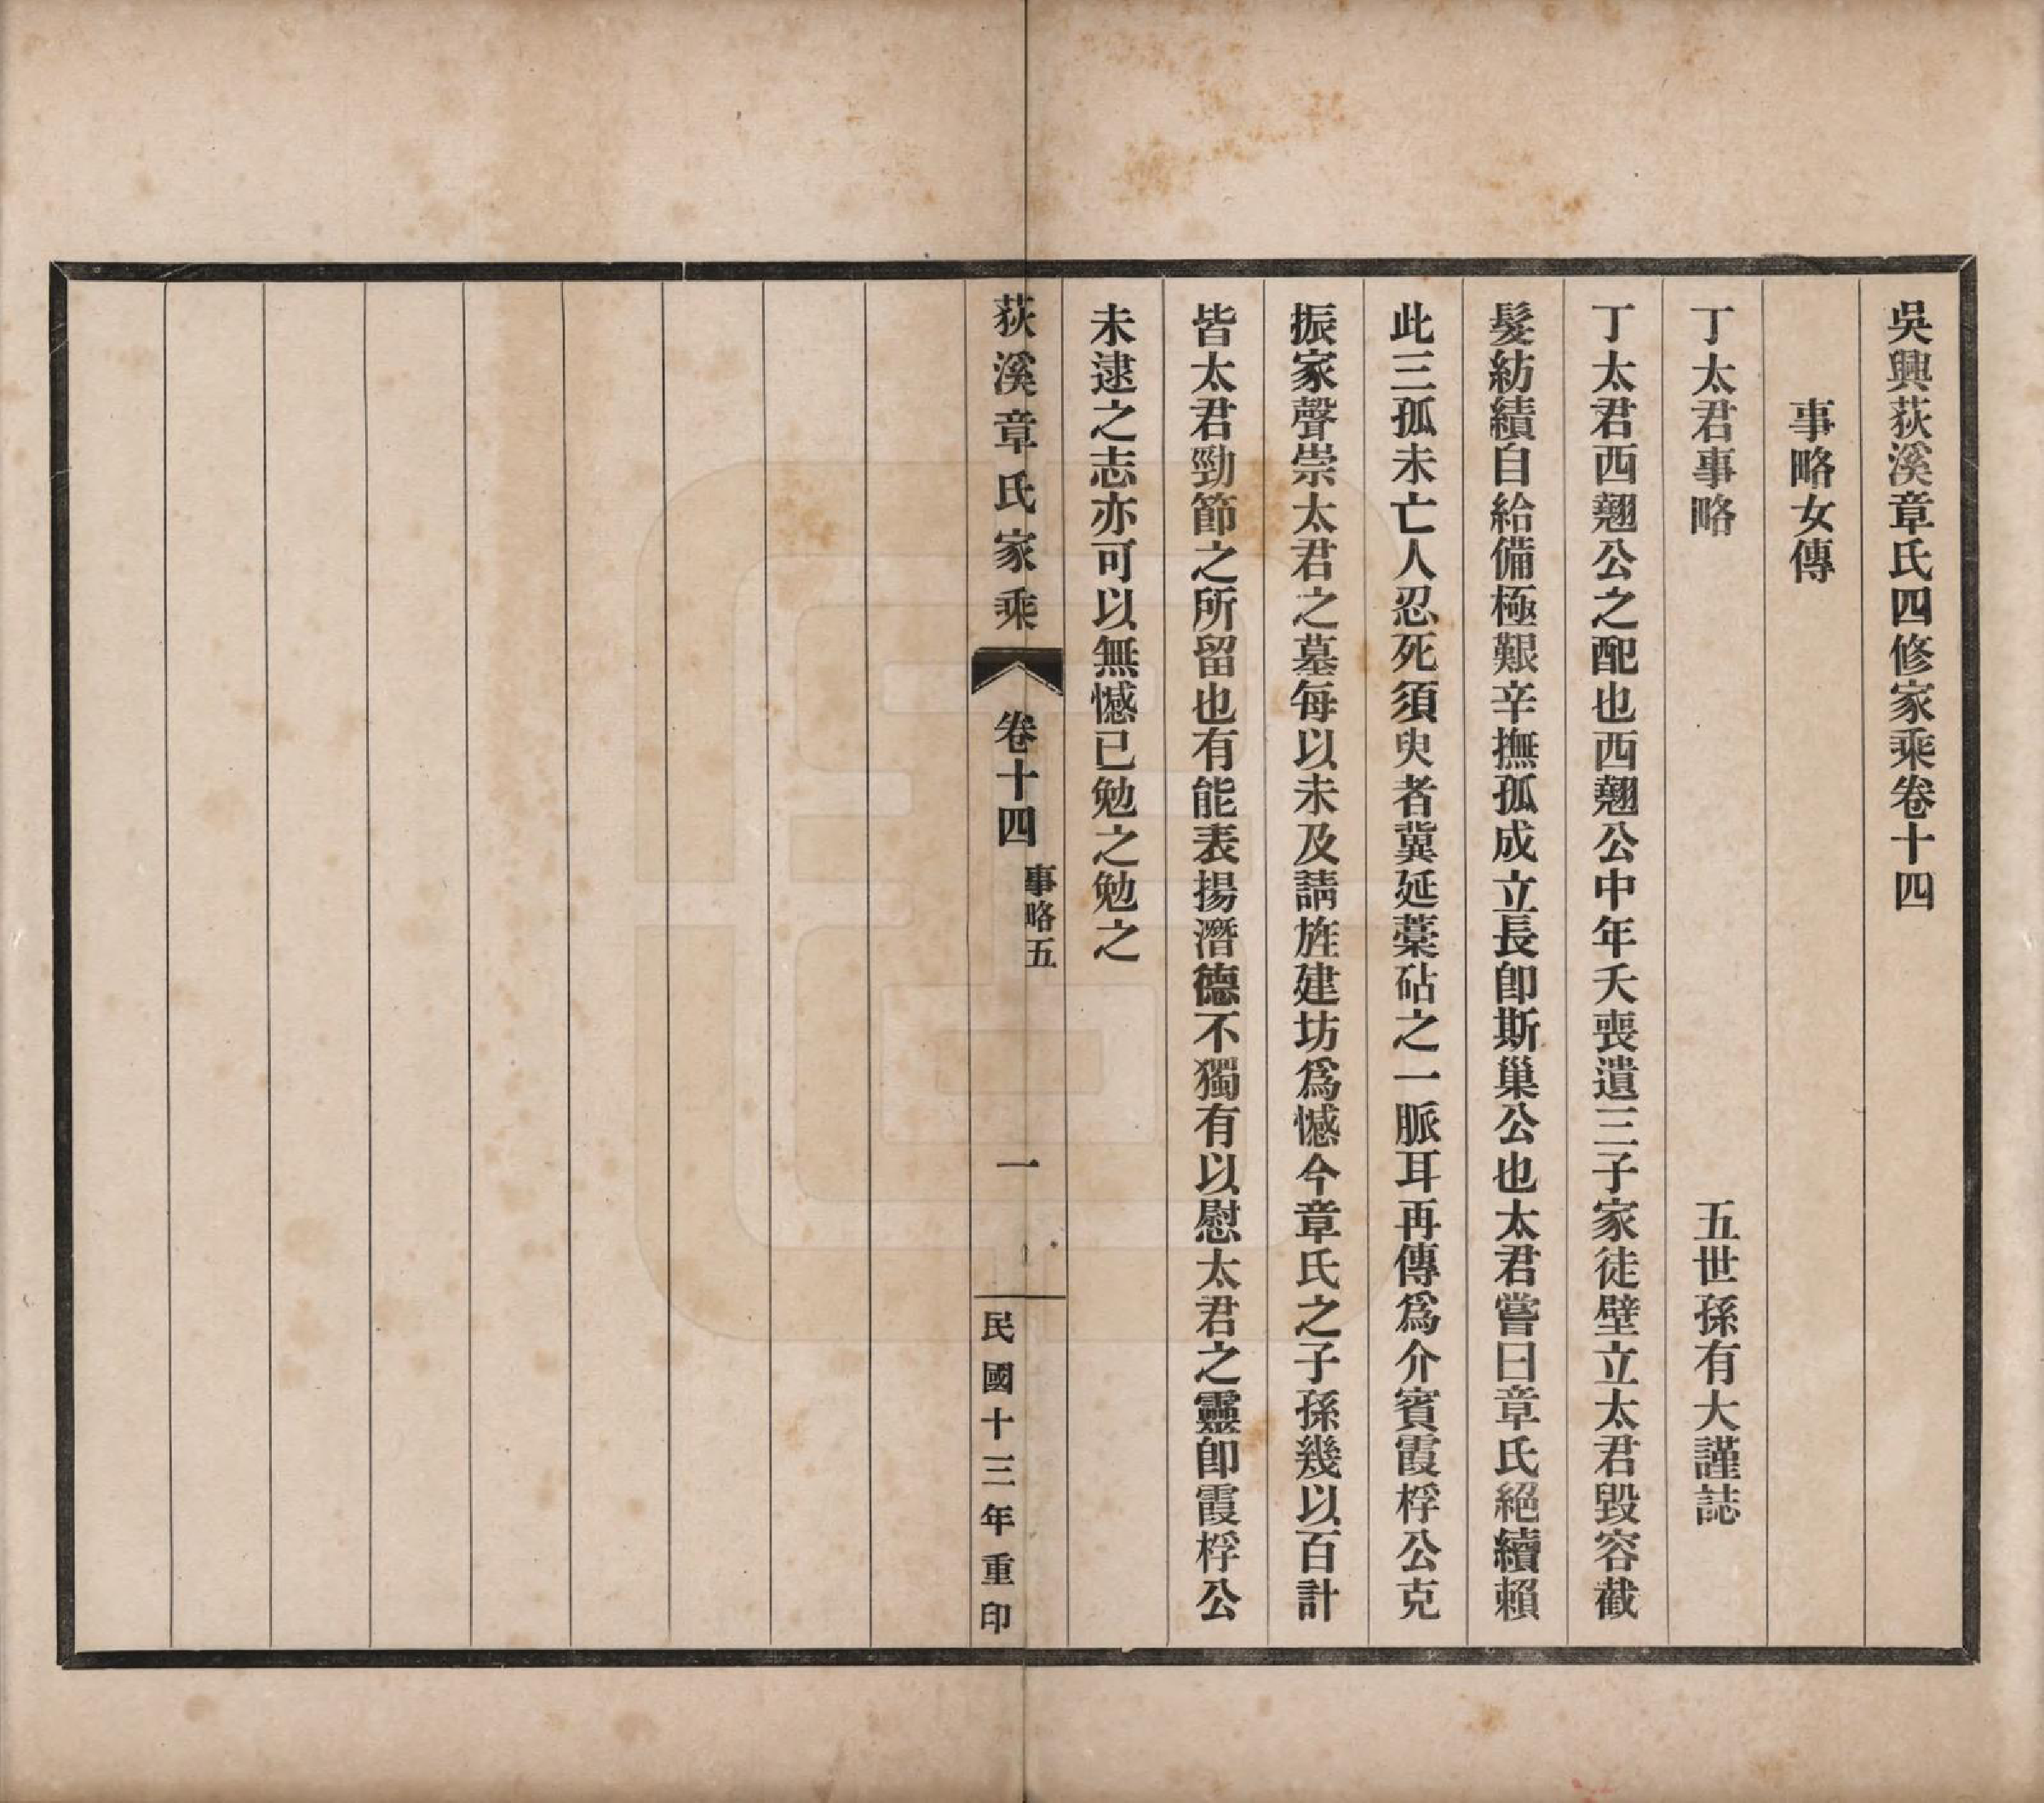 吳興荻溪章氏四修家乘卷十四
事略女傳
丁太君事略 五世孫有大謹誌
丁太君西翹公之配也西翹公中年夭喪遺三子家徒壁立太君毀容截
髮紡績自給備極艱辛撫孤成立長卽斯巢公也太君嘗曰章氏絕續賴
此三孤未亡人忍死須臾者冀延藁砧之一脈耳再傳爲介賓霞桴公克
振家聲崇太君之墓每以未及請旌建坊爲憾今章氏之子孫幾以百計
皆太君勁節之所留也有能表揚潛德不獨有以慰太君之靈卽霞桴公
未逮之志亦可以無憾已勉之勉之
荻溪章氏家乘 卷十四 事略五 一 民國十三年重印